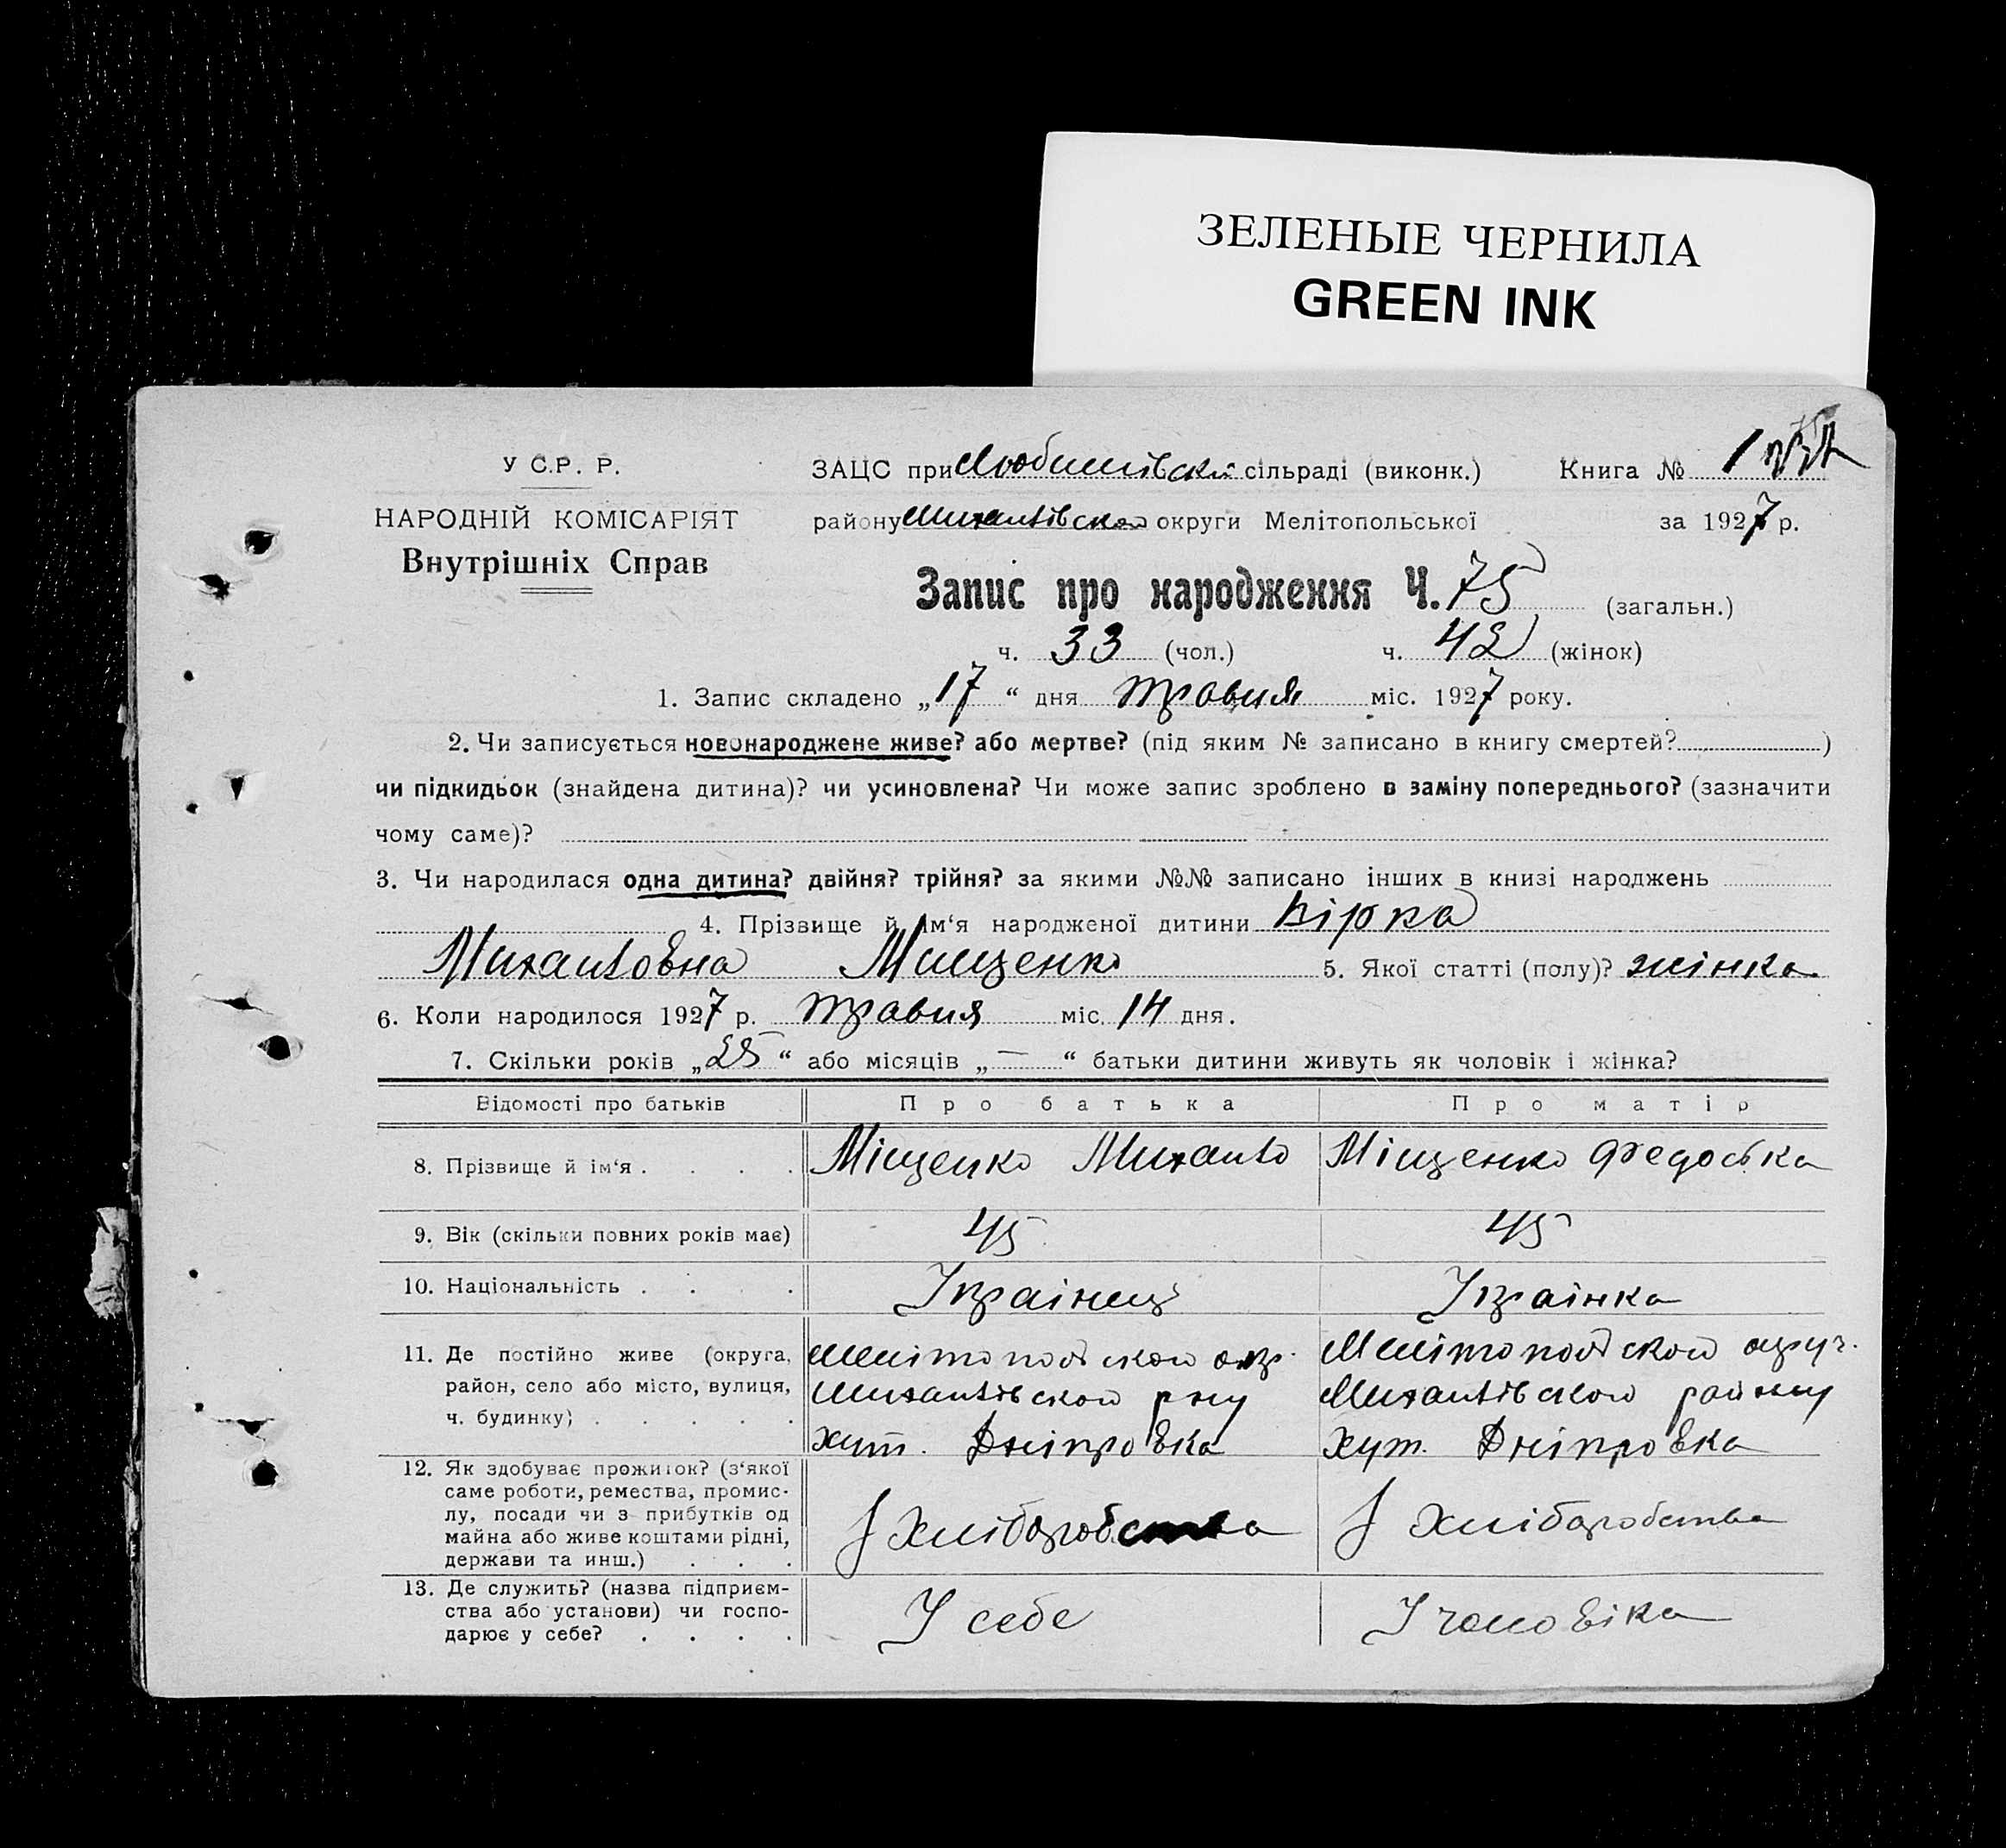 ЗЕЛЕНЫЕ ЧЕРНИЛА
GREEN INK
У С.Р. Р.
НАРОДНІЙ КОМІСАРІЯТ
Внутрішніх Справ
ЗАЦС при Любимівській сільраді (виконк.) Книга № 1
району Михайлівского округи Мелітопольської за 1927 р.
Запис про народження Ч. 75 (загальн.)
ч. 33 (чол.) ч. 42 (жінок)
1. Запис складено „17“ дня травня міс. 1927 року.
2. Чи записується новонароджене живе? або мертве? (під яким № записано в книгу смертей? )
чи підкидьок (знайдена дитина)? чи усиновлена? Чи може запис зроблено в заміну попереднього? (зазначити
чому саме)?
3. Чи народилася одна дитина? двійня? трійня? за якими №№ записано інших в книзі народжень
4. Прізвище й ім‘я народженої дитини Вірка
Михайловна Мищенко 5. Якої статті (полу)? жінка
6. Коли народилося 1927 р. травня міс. 14 дня.
7. Скільки років „25“ або місяців „—“ батьки дитини живуть як чоловік і жінка?
Відомості про батьків Про батька Про матір
8. Прізвище й ім‘я . . . . Міщенко Михайло Міщенко Федоська
9. Вік (скільки повних років має) 45 45
10. Національність . . . Українець Українка
11. Де постійно живе (округа, район, село або місто, вулиця, ч. будинку) . . . . .
Мелітопольской окр.
Михайлівскои рну
хут. Дніпровка
Мелітопольской округ.
Михайлівской району
Хут. Дніпровка
12. Як здобуває прожиток? (з‘якої
саме роботи, ремества, промис-
лу, посади чи з прибутків од
майна або живе коштами рідні,
держави та инш.) . . .
З Хліборобства
З Хліборобства
13. Де служить? (назва підприєм-
ства або установи) чи госпо-
дарює у себе? . . . .
У себе
У чоловіка